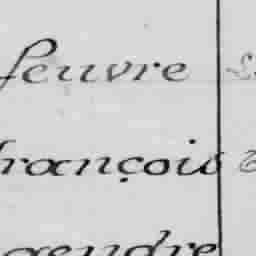 feuvre
françois
gendre